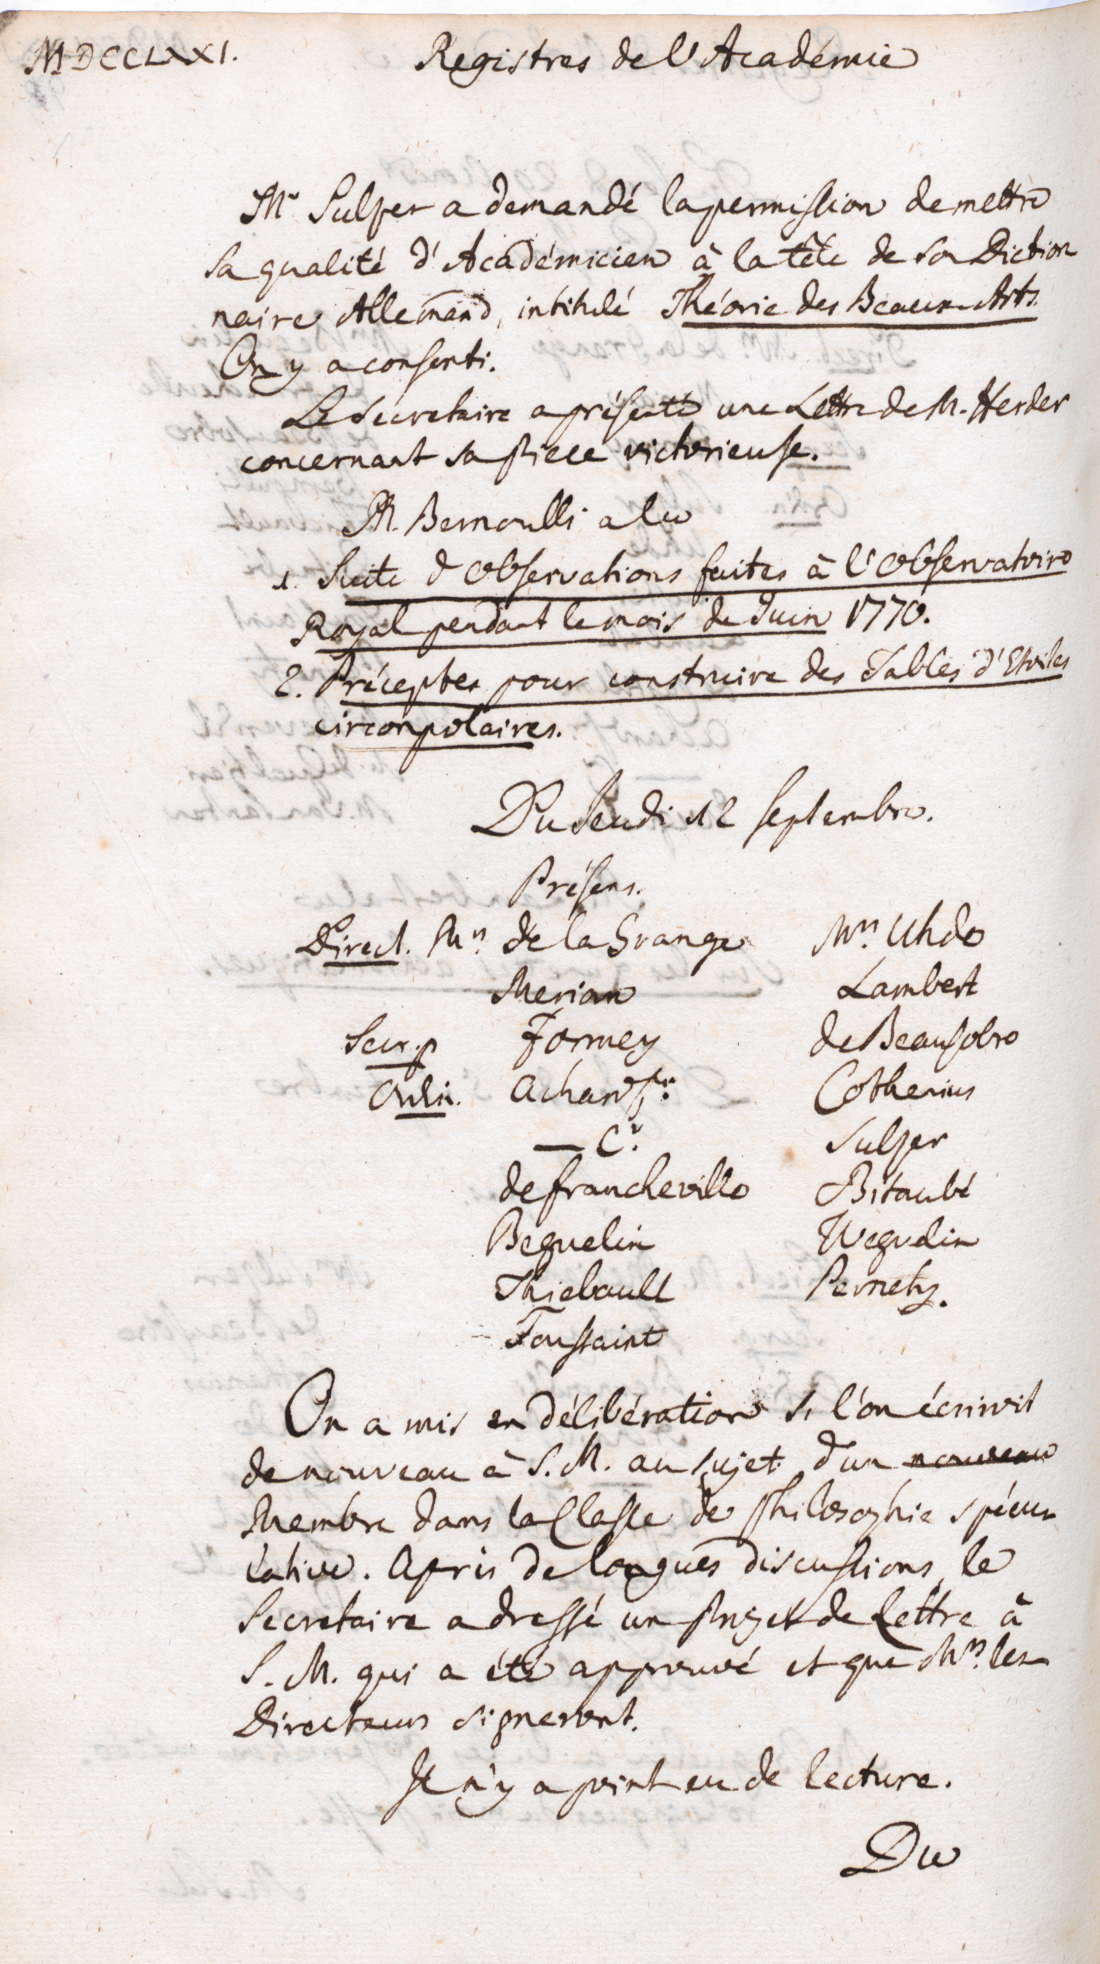 MDCCLXXI.
Registres de l'Académie
Mr Sulzer a demandé la permission de mettre
sa qualité d'Académicien à la tête de son Diction
naire Allemand, intitulé Théorie des Beaux-Arts.
On y a consenti.
Le Secretaire a présenté une Lettre de M. Herder
concernant sa piece victorieuse.
M. Bernoulli a lu
1. Suite d'Observations faites à l'Observatoire
Royal pendant le mois de Juin 1770.
2. Préceptes pour construire des Tables d'Etoiles
circonpolaires.
Du Jeudi 12 Septembre.
Présens.
Direct. Mrs de la Grange
Merian
Secr. p Formey
Ordin. Achard Sr.
— Cr
de Francheville
Beguelin
Thiebault
Toussaint
Mrs. Uhdo
Lambert
de Beausobre
Cothenius
Sulzer
Bitaubé
Weguelin
Pernety.
On a mis en délibération si l'on écriroit
de nouveau à S. M. au sujet d'un nouveau
Membre dans la Classe de Philosophie spécu
lative. Après de longues discussions, le
Secretaire a dressé un projet de Lettre à
S. M. qui a été approuvé et que Mrs. les
Directeurs signeront.
Il n'y a point eu de lecture.
Du